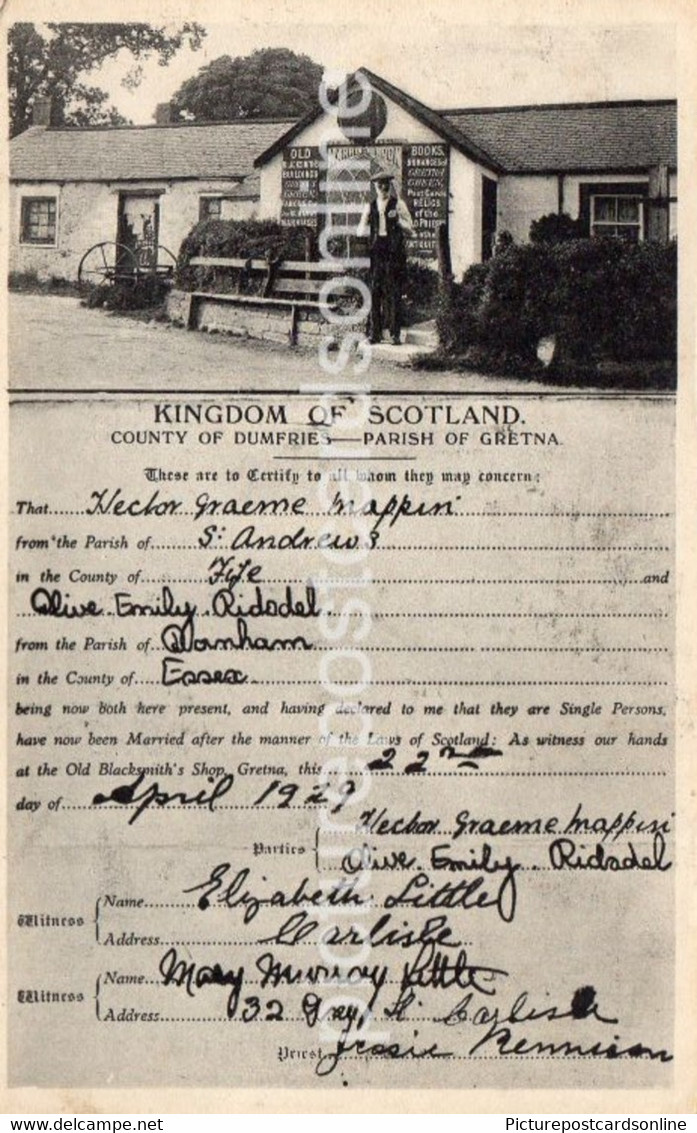 OLD
BOOKS,
ROMANCES
of
GRETNA
GREEN,
Post Cards
RELICS
of the
KINGDOM OF SCOTLAND.
COUNTY OF DUMFRIES—PARISH OF GRETNA.
These are to Certify to all whom they may concern:
That Hector Graeme Mappin
from the Parish of St Andrews
in the County of Fife and
Olive Emily Ridsdel
from the Parish of
in the County of Essex
being now both here present, and having declared to me that they are Single Persons,
have now been Married after the manner of the Laws of Scotland: As witness our hands
at the Old Blacksmith's Shop, Gretna, this 22nd
day of April 1929
Parties Hector Graeme Mappin
Olive Emily Ridsdel
Witness Name Elizabeth Little
Address Carlisle
Witness Name Mary Murray Little
Address 32 Grey St Carlisle
Priest Jessie Rennison
picturepostcardsonline
www.delcampe.net
Picturepostcardsonline